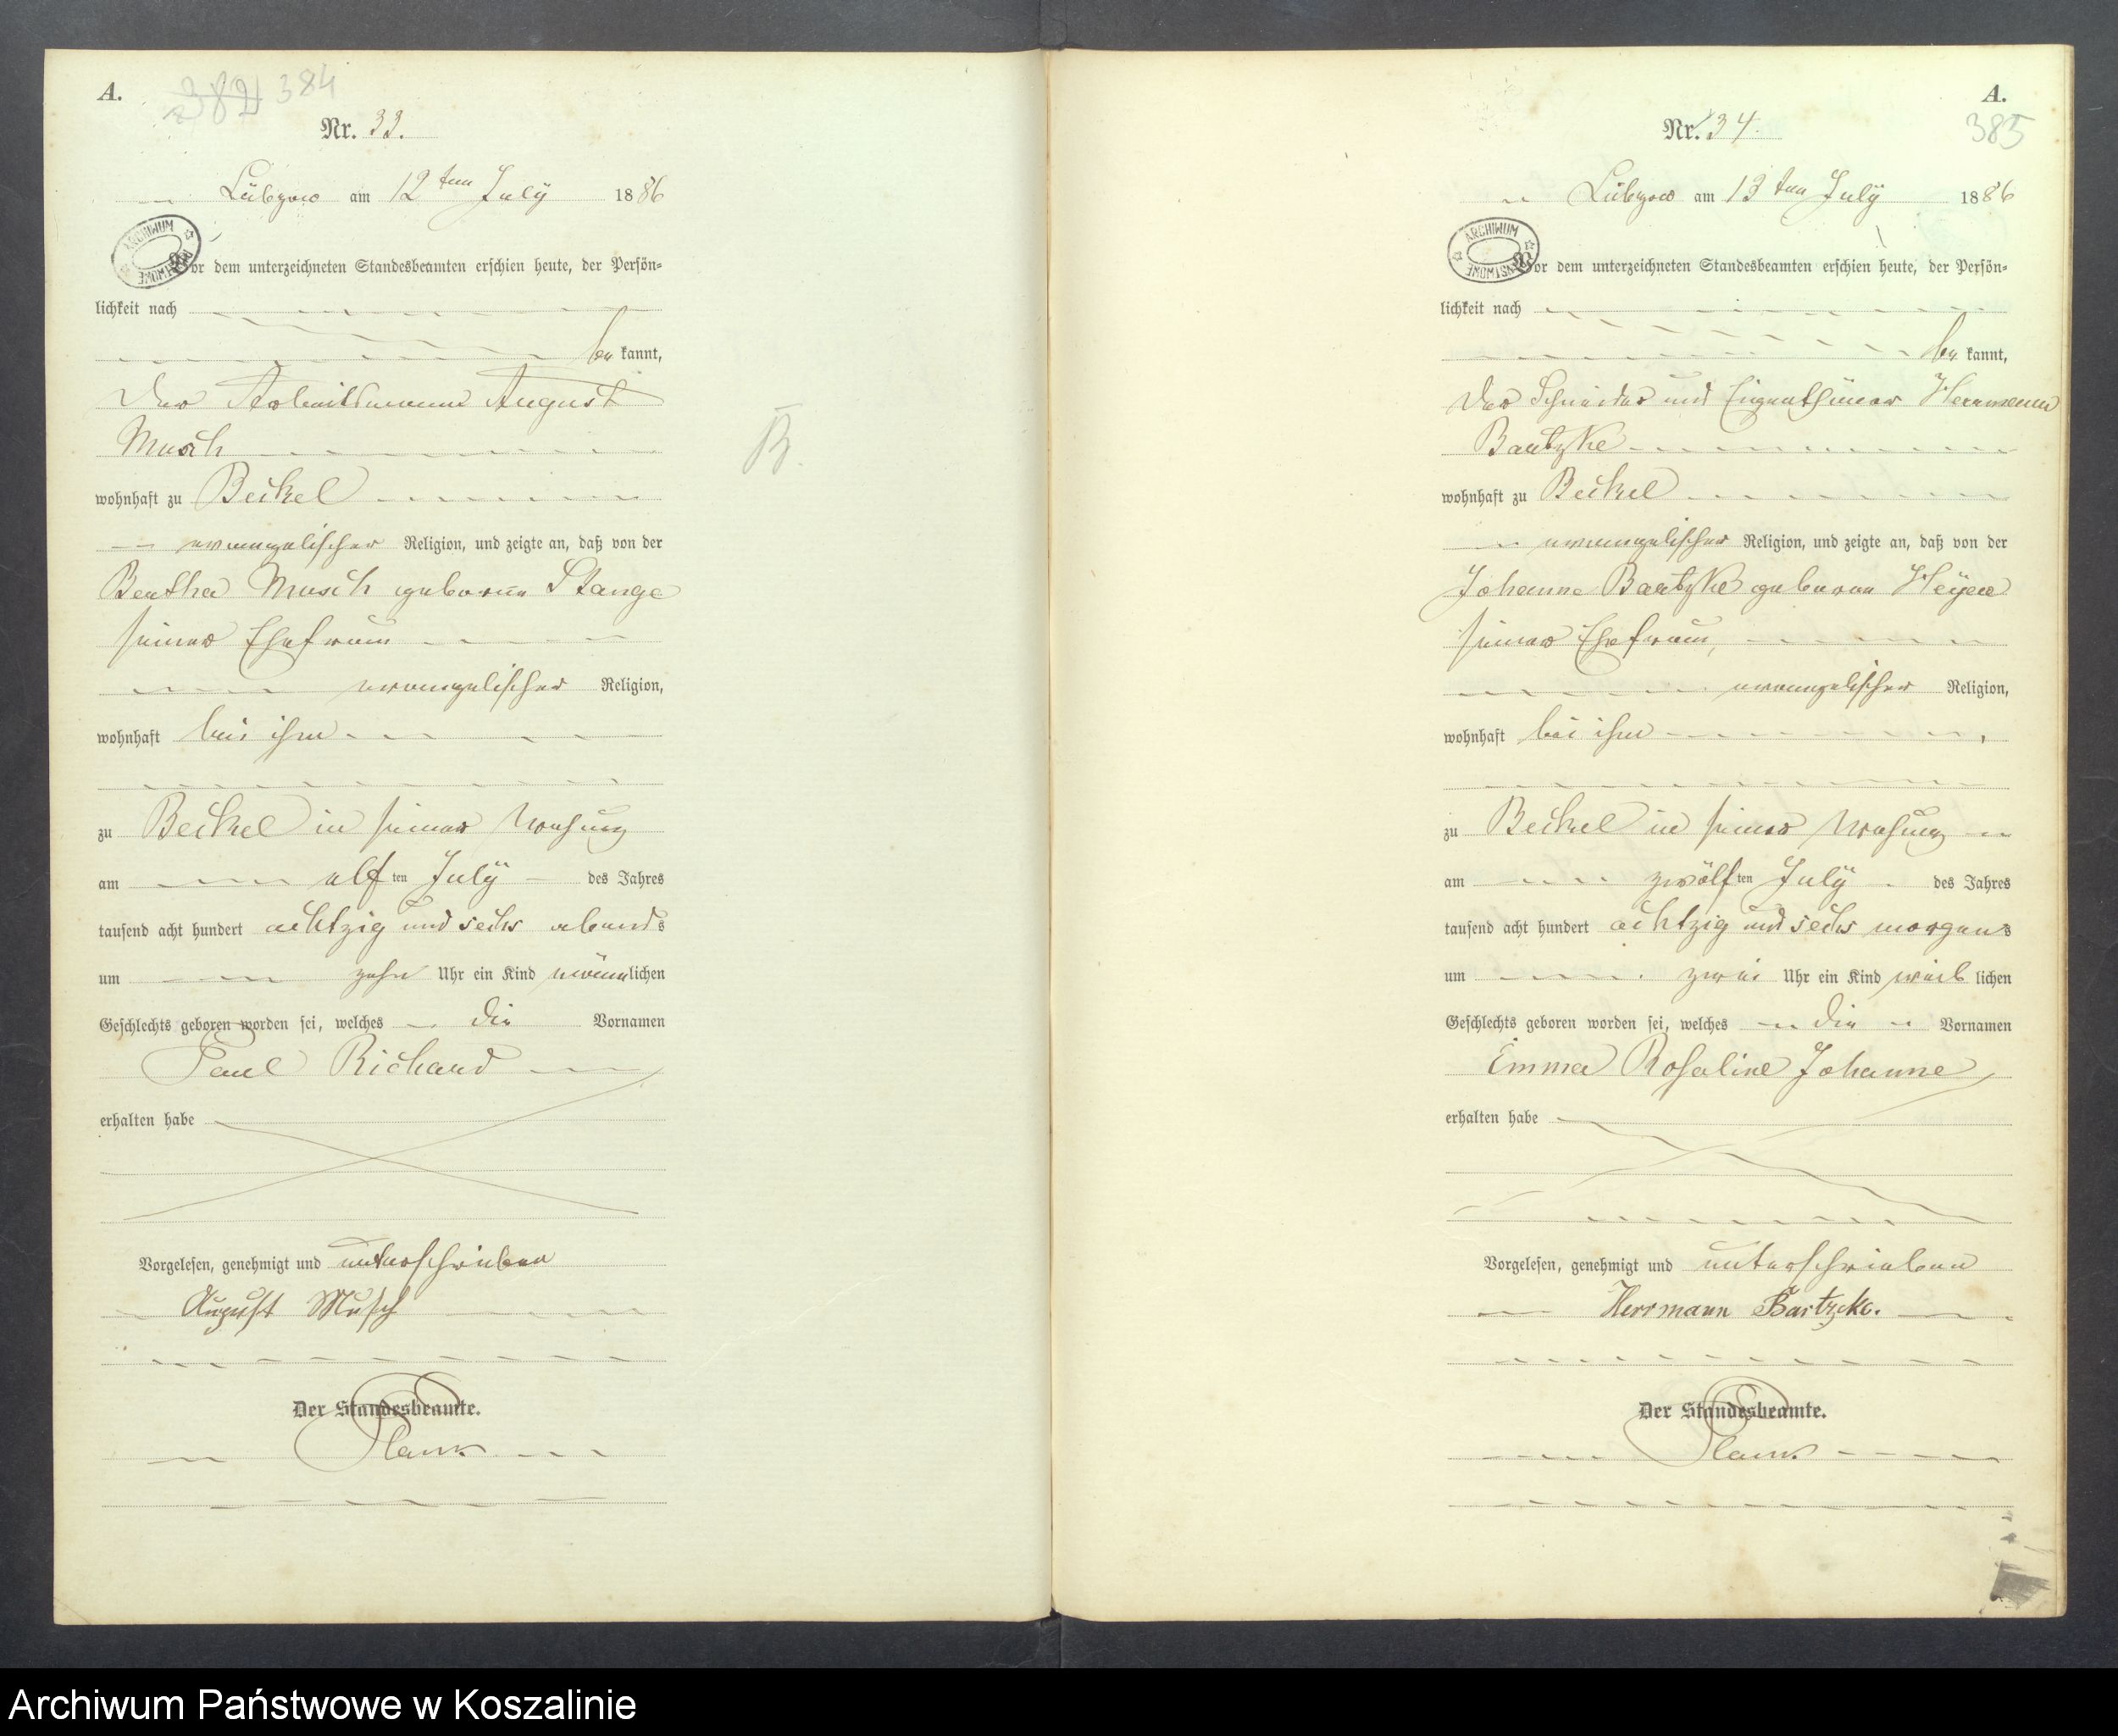 A.
384
Nr. 33.
Lübzow am 12ten July 1886
ARCHIWUM
Vor dem unterzeichneten Standesbeamten erschien heute, der Persön=
lichkeit nach
be kannt,
Der Arbeitsmann August
Musch
wohnhaft zu Beckel
evangelischer Religion, und zeigte an, daß von der
Bertha Musch geborne Stange
seiner Ehefrau
evangelischer Religion,
wohnhaft bei ihm
zu Beckel in seiner Wohung
am elf ten July des Jahres
tausend acht hundert achtzig und sechs abends
um zehn Uhr ein Kind männlichen
Geschlechts geboren worden sei, welches die Vornamen
Paul Richard
erhalten habe
Vorgelesen, genehmigt und unterschrieben
August Musch
Der Standesbeamte.
Plank
B.
A.
385
Nr. 34.
Lübzow am 13ten July 1886
ARCHIWUM
Vor dem unterzeichneten Standesbeamten erschien heute, der Persön=
lichkeit nach
be kannt,
Der Schneider und Eigenthümer Herrmann
Bartzke
wohnhaft zu Beckel
evangelischer Religion, und zeigte an, daß von der
Johanne Bartzke geborne Heyer
seiner Ehefrau,
evangelischer Religion,
wohnhaft bei ihm
zu Beckel in seiner Wohung
am zwölf ten July des Jahres
tausend acht hundert achtzig und sechs morgens
um zwei Uhr ein Kind weib lichen
Geschlechts geboren worden sei, welches die Vornamen
Emma Rosaline Johanne
erhalten habe
Vorgelesen, genehmigt und unterschrieben
Herrmann Bartzke.
Der Standesbeamte.
Plank
Archiwum Państwowe w Koszalinie